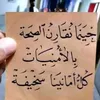 حينما نقارن الصحة
بالأمنيات
كل أمانينا سخيفة